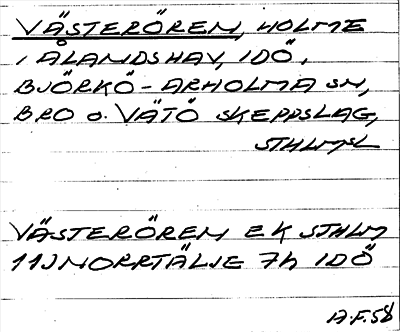 VÄSTERÖREN, HOLME
I ÅLANDSHAV, IDÖ,
BJÖRKÖ-ARHOLMA SN,
BRO O. VÄTÖ SKEPPSLAG,
STHLMSL
VÄSTERÖREN EK STHLM
11J NORRTÄLJE 7h IDÖ
A.F.58